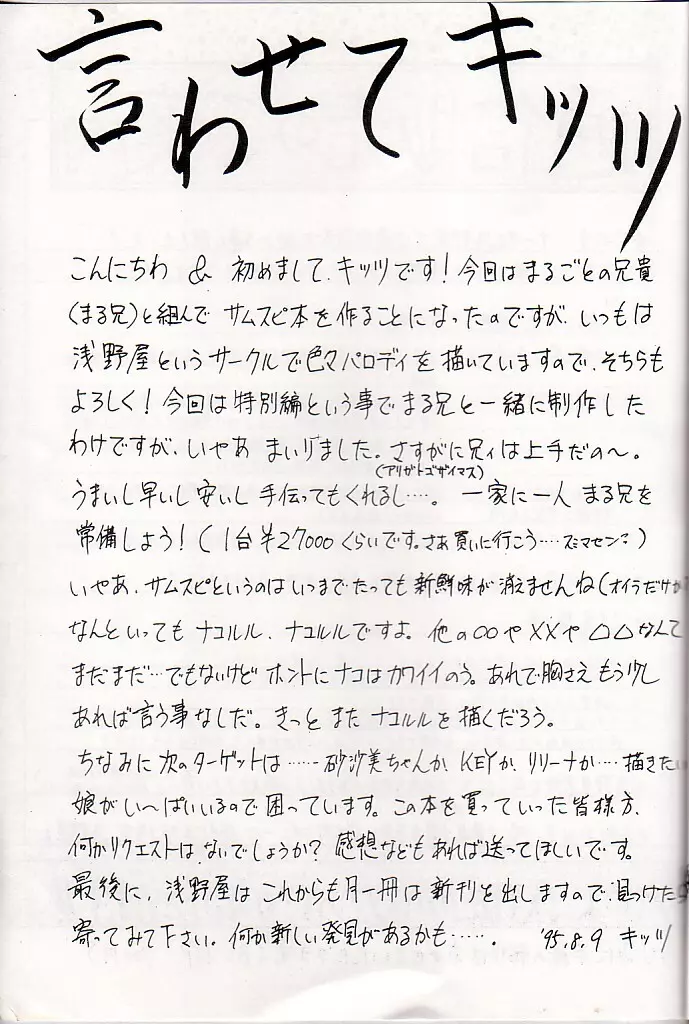 言わせてキッツ
こんにちわ & 初めまして、キッツです！今回はまるごとの兄貴
（まる兄）と組んで サムスピ本を作ることになったのですが、いつもは
浅野屋というサークルで色々パロディを描いていますので、そちらも
よろしく！今回は特別編という事でまる兄と一緒に制作した
わけですが、いやあ まいりました。さすがに兄ィは上手だの〜。
（アリガトゴザイマス）
うまいし早いし安いし手伝ってもくれるし….。一家に一人 まる兄を
常備しよう！（1台￥27000くらいです。さあ買いに行こう….スミマセン？）
いやあ、サムスピというのはいつまでたっても新鮮味が消えませんね（オイラだけか
なんといっても ナコルル、ナコルルですよ。他の○○や××や△△なんて
まだまだ…でもないけど ホントにナコはカワイイのう。あれで胸さえもう少し
あれば言う事なしだ。きっと また ナコルルを描くだろう。
ちなみに次のターゲットは……砂沙美ちゃんか、KEYか、リリーナか….描きたい
娘がい〜ぱいいるので困っています。この本を買っていった皆様方、
何かリクエストは ないでしょうか？感想などもあれば送ってほしいです。
最後に、浅野屋は これからも月一冊は新刊を出しますので、見つけたら
寄ってみて下さい。何か新しい発見があるかも…….　'95.8.9 キッツ